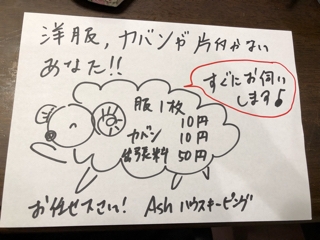 洋服，カバンが片付かない
あなた!!
すぐにお伺い
します♪
服1枚
10円
カバン 10円
出張料 50円
お任せ下さい! Ashハウスキーピング